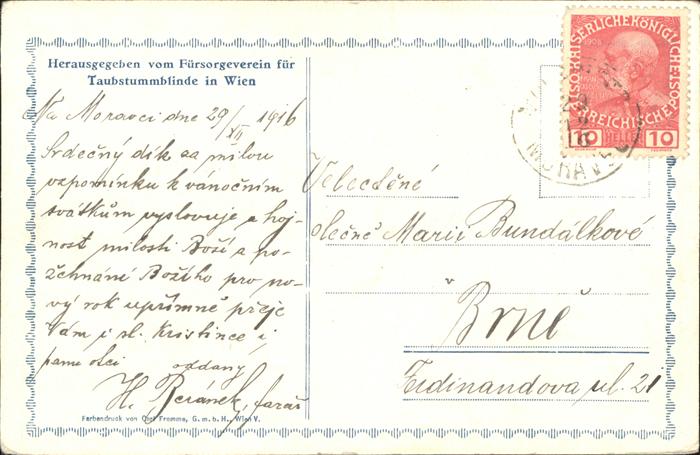 Herausgegeben vom Fürsorgeverein für
Taubstummblinde in Wien
Na Moravci dne 29/XII 1916
Srdečný dík za milou
vzpomínku k vánočním
svátkům vyslovuje a hoj-
nost milosti Boží a po-
žehnání Božího pro no-
vý rok upřímně přeje
Vám i sl. Kristince i
panu otci
oddaný
H. Beránek, farář
Farbendruck von Osk. Fromme, G. m. b. H., Wien V.
KAISERLICHE KÖNIGLICHE
ÖSTERREICHISCHE POST
1908
10 HELLER 10
MORAV
Velectěné
slečně Marii Bundálkové
v
Brně
Ferdinandova ul. 21